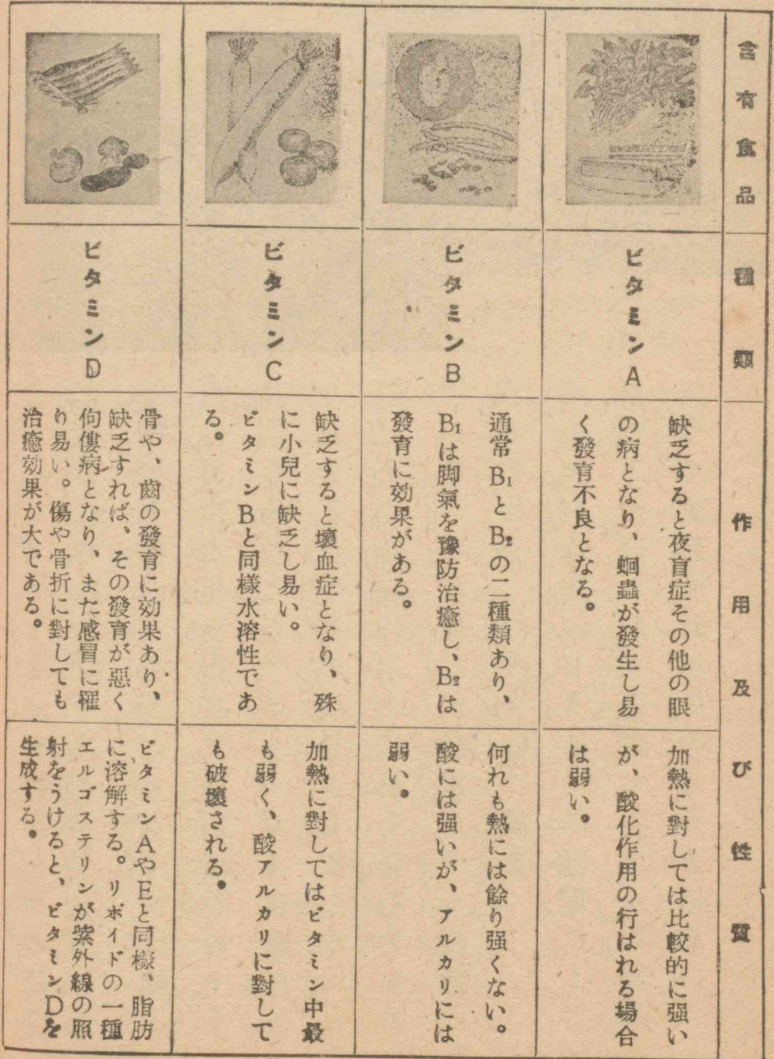 含有食品
種類
作用及び性質
ビタミンA
缺乏すると夜盲症その他の眼
の病となり、蛔蟲が發生し易
く發育不良となる。
加熱に對しては比較的に强い
が、酸化作用の行はれる場合
は弱い。
ビタミンB
通常B₁とB₂の二種類あり、
B₁は脚氣を豫防治癒し、B₂は
發育に効果がある。
何れも熱には餘り强くない。
酸には强いが、アルカリには
弱い。
ビタミンC
缺乏すると壞血症となり、殊
に小兒に缺乏し易い。
ビタミンBと同樣水溶性であ
る。
加熱に對してはビタミン中最
も弱く、酸アルカリに對して
も破壞される。
ビタミンD
骨や、齒の發育に効果あり、
缺乏すれば、その發育が惡く
佝僂病となり、また感冒に罹
り易い。傷や骨折に對しても
治癒効果が大である。
ビタミンAやEと同樣、脂肪
に溶解する。リポイドの一種
エルゴステリンが紫外線の照
射をうけると、ビタミンDを
生成する。